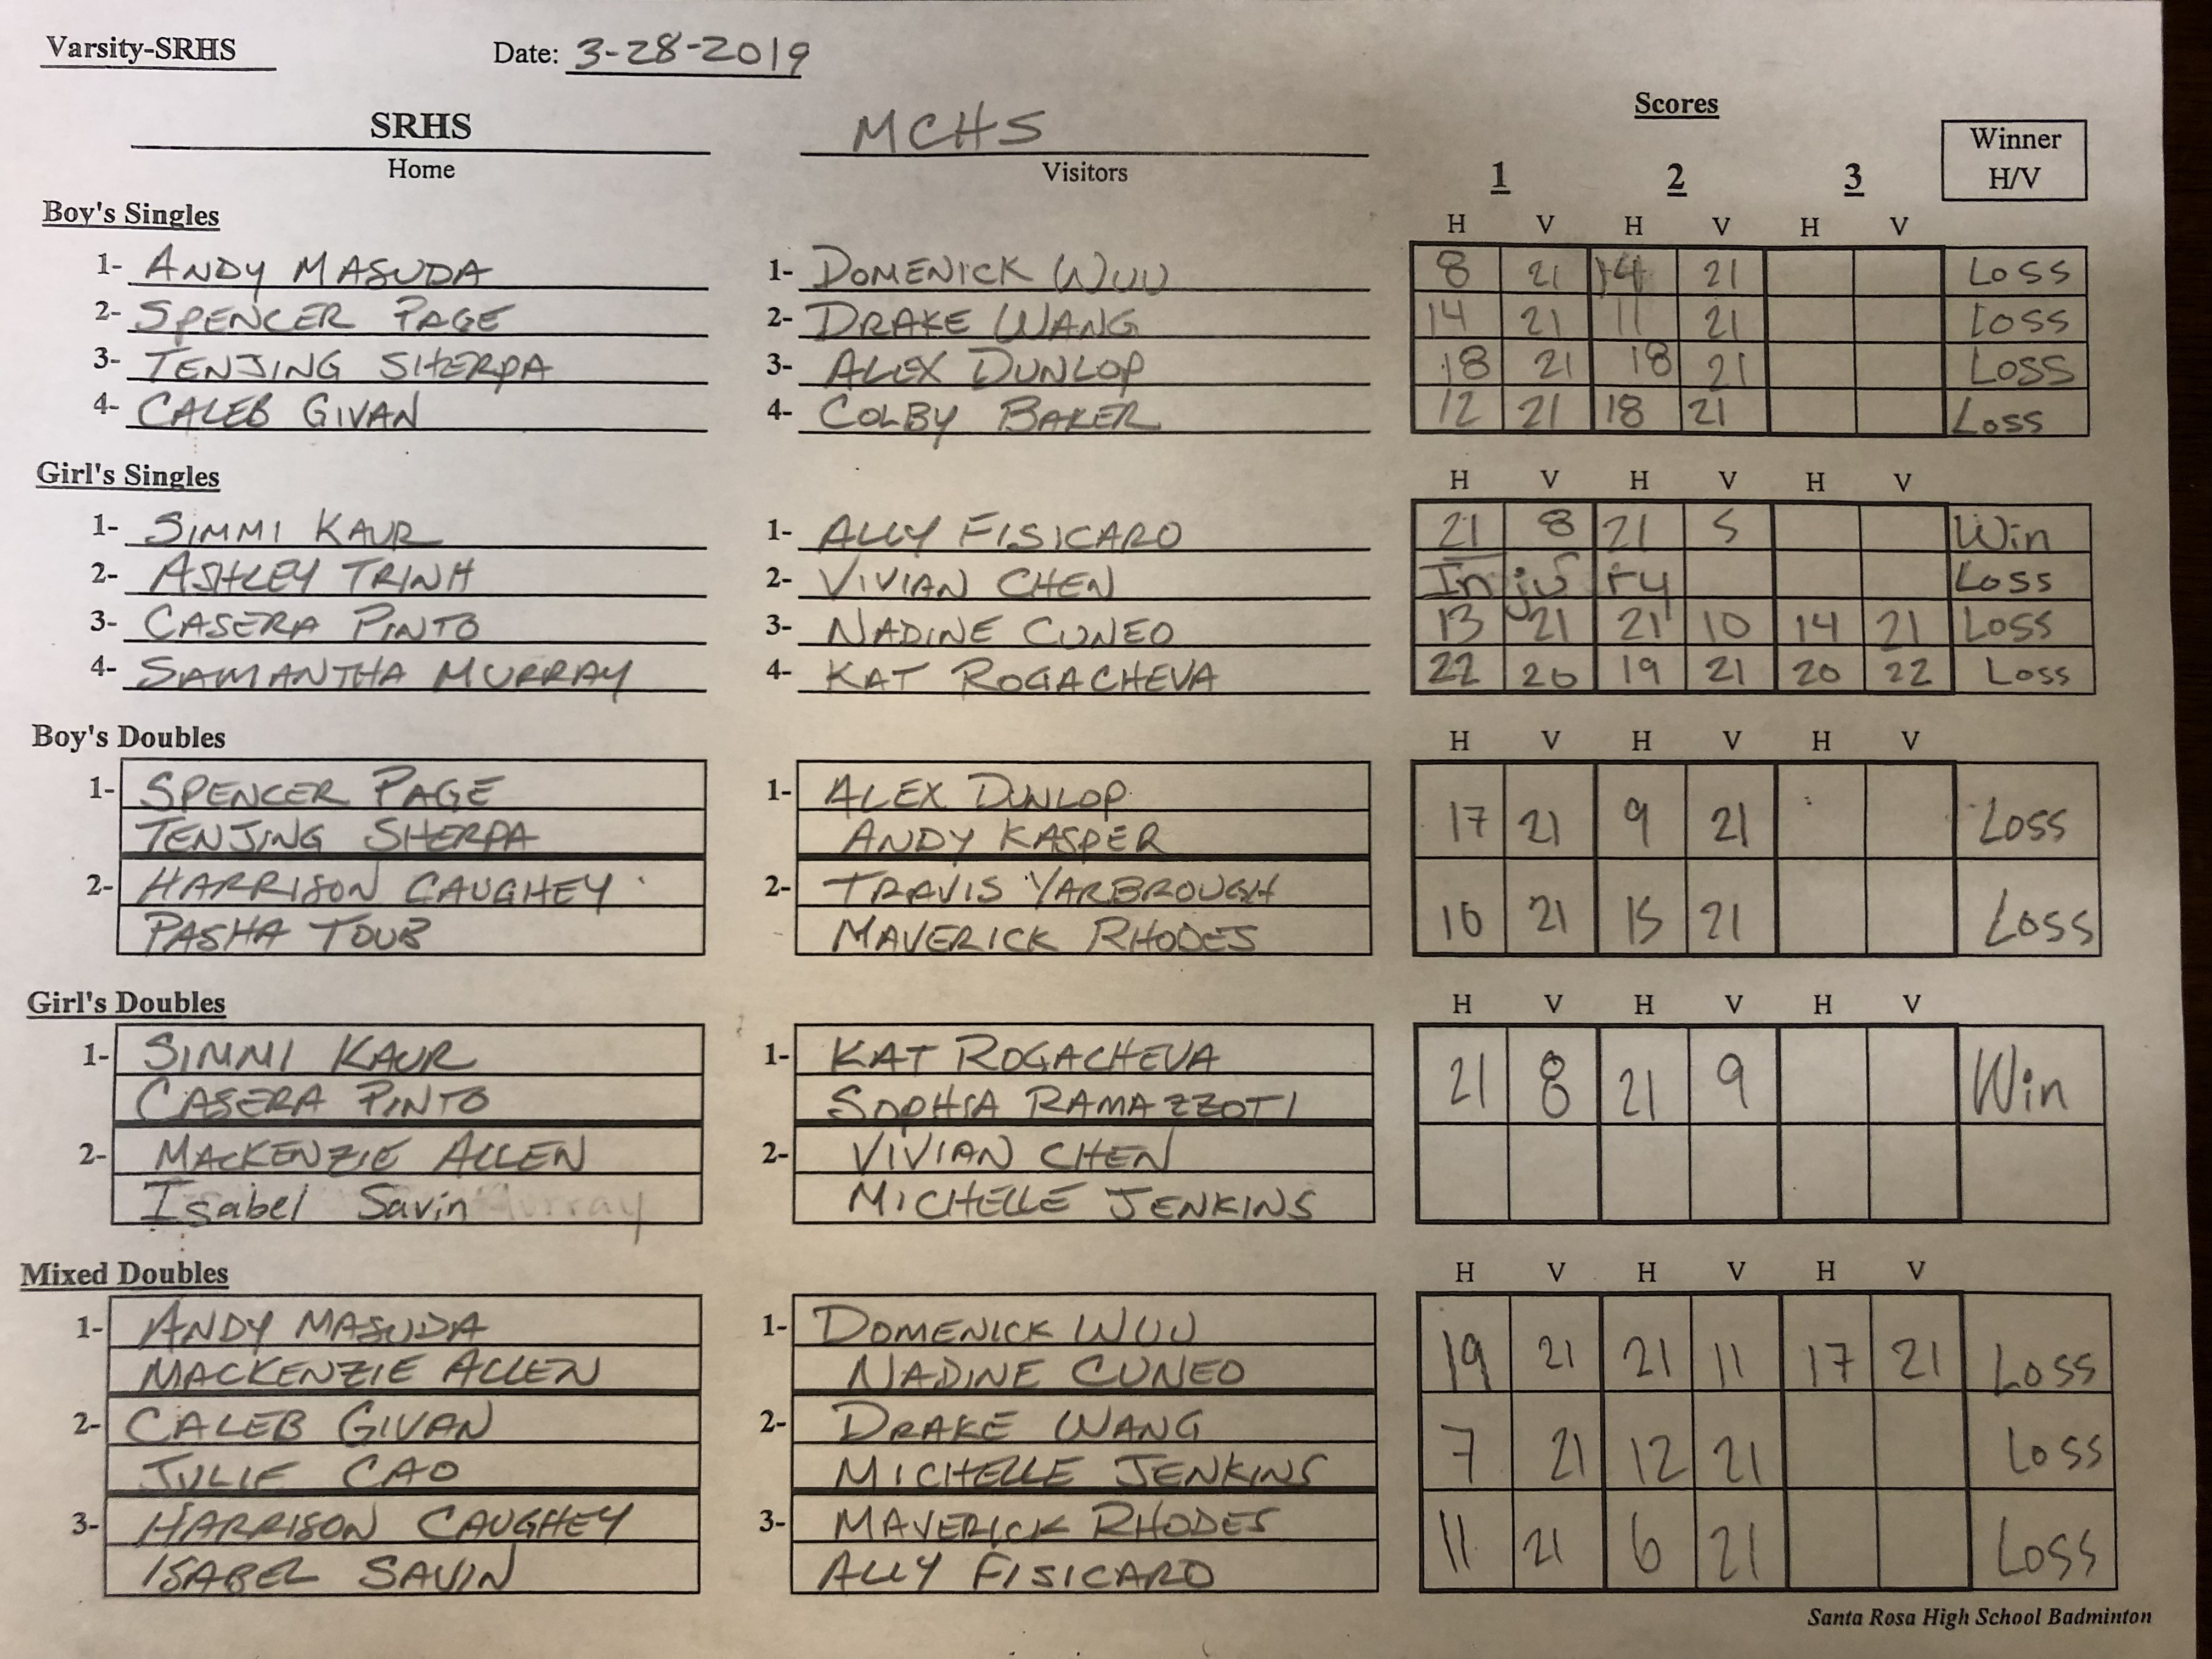 Varsity-SRHS Date: 3-28-2019
Scores
SRHS MCHS
Home Visitors
Winner
H/V
1 2 3
Boy's Singles H V H V H V
1- ANDY MASUDA 1- DOMENICK WUU 8 21 14 21 Loss
2- SPENCER PAGE 2- DRAKE WANG 14 21 11 21 Loss
3- TENJING SHERPA 3- ALEX DUNLOP 18 21 18 21 Loss
4- CALEB GIVAN 4- COLBY BAKER 12 21 18 21 Loss
Girl's Singles H V H V H V
1- SIMMI KAUR 1- ALLY FISICARO 21 8 21 5 Win
2- ASHLEY TRINH 2- VIVIAN CHEN Injury Loss
3- CASERA PINTO 3- NADINE CUNEO 13 21 21 10 14 21 Loss
4- SAMANTHA MURRAY 4- KAT ROGACHEVA 22 20 19 21 20 22 Loss
Boy's Doubles H V H V H V
1- SPENCER PAGE 1- ALEX DUNLOP
TENJING SHERPA ANDY KASPER 17 21 9 21 Loss
2- HARRISON CAUGHEY 2- TRAVIS YARBROUGH
PASHA TOUB MAVERICK RHODES 21 15 21 Loss
Girl's Doubles H V H V H V
1- SIMMI KAUR 1- KAT ROGACHEVA
CASERA PINTO SOPHIA RAMAZZOTI 21 8 21 9 Win
2- MACKENZIE ALLEN 2- VIVIAN CHEN
Isabel Savin Murray MICHELLE JENKINS
Mixed Doubles H V H V H V
1- ANDY MASUDA 1- DOMENICK WUU
MACKENZIE ALLEN NADINE CUNEO 19 21 21 11 17 21 Loss
2- CALEB GIVAN 2- DRAKE WANG
JULIE CAO MICHELLE JENKINS 7 21 12 21 Loss
3- HARRISON CAUGHEY 3- MAVERICK RHODES
ISABEL SAVIN ALLY FISICARO 11 21 6 21 Loss
Santa Rosa High School Badminton